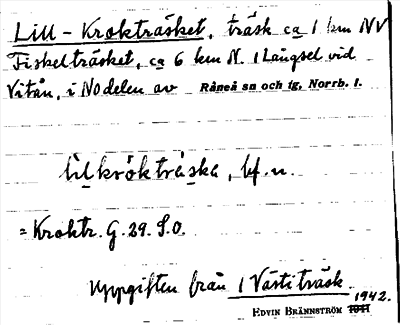 Lill-Krokträsket, träsk ca 1 km NV
Fiskelträsket, ca 6 km N. 1 Långsel vid
Vitån, i NO delen av Råneå sn och tg, Norrb. l.
lilkròktràska, bf. n.
= Kroktr. G. 29. S.O.
Uppgiften från 1 Västiträsk.
EDVIN BRÄNNSTRÖM 1942.